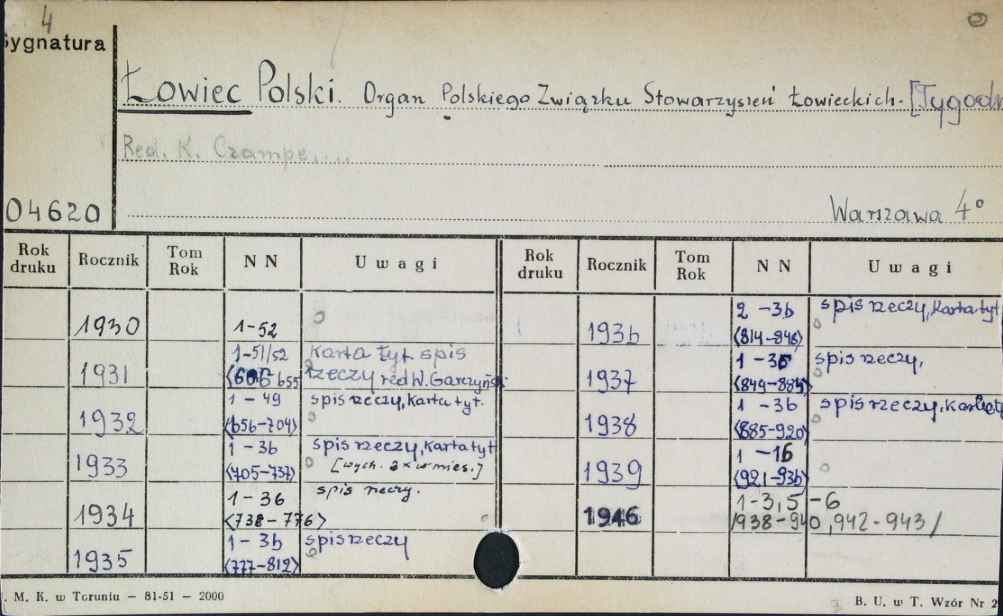 4
Sygnatura
Łowiec Polski. Organ Polskiego Związku Stowarzyszeń Łowieckich. [Tygodn
Red. K. Czampe....
04620
Warszawa 4°
Rok druku Rocznik Tom Rok NN Uwagi Rok druku Rocznik Tom Rok NN Uwagi
1930 1-52
1931 1-51/52 <606 655 Karta tyt. spis rzeczy red W. Garczyński
1932 1-49 <656-704> spis rzeczy, karta tyt.
1933 1-36 <705-737> spis rzeczy, karta tyt [wych. 3x w mies.]
1934 1-36 <738-776> spis rzeczy.
1935 1-36 <777-812> spis rzeczy
1936 2-36 <814-848> spis rzeczy, karta tyt
1937 1-36 <849-884> spis rzeczy,
1938 1-36 <885-920> spis rzeczy, karta ty
1939 1-16 <921-936>
1946 1-3,5-6 /938-940,942-943/
. M. K. w Toruniu — 81-51 — 2000
B. U. w T. Wzór Nr 2